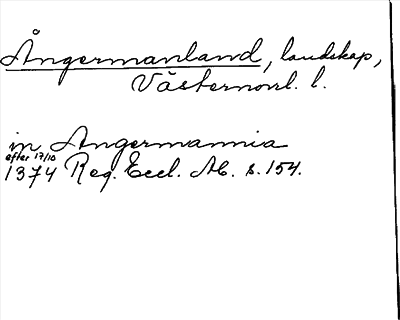 Ångermanland, landskap,
Västernorrl. l.
in Angermannia
efter 17/10
1374 Reg. Eccl. Ab. s. 154.